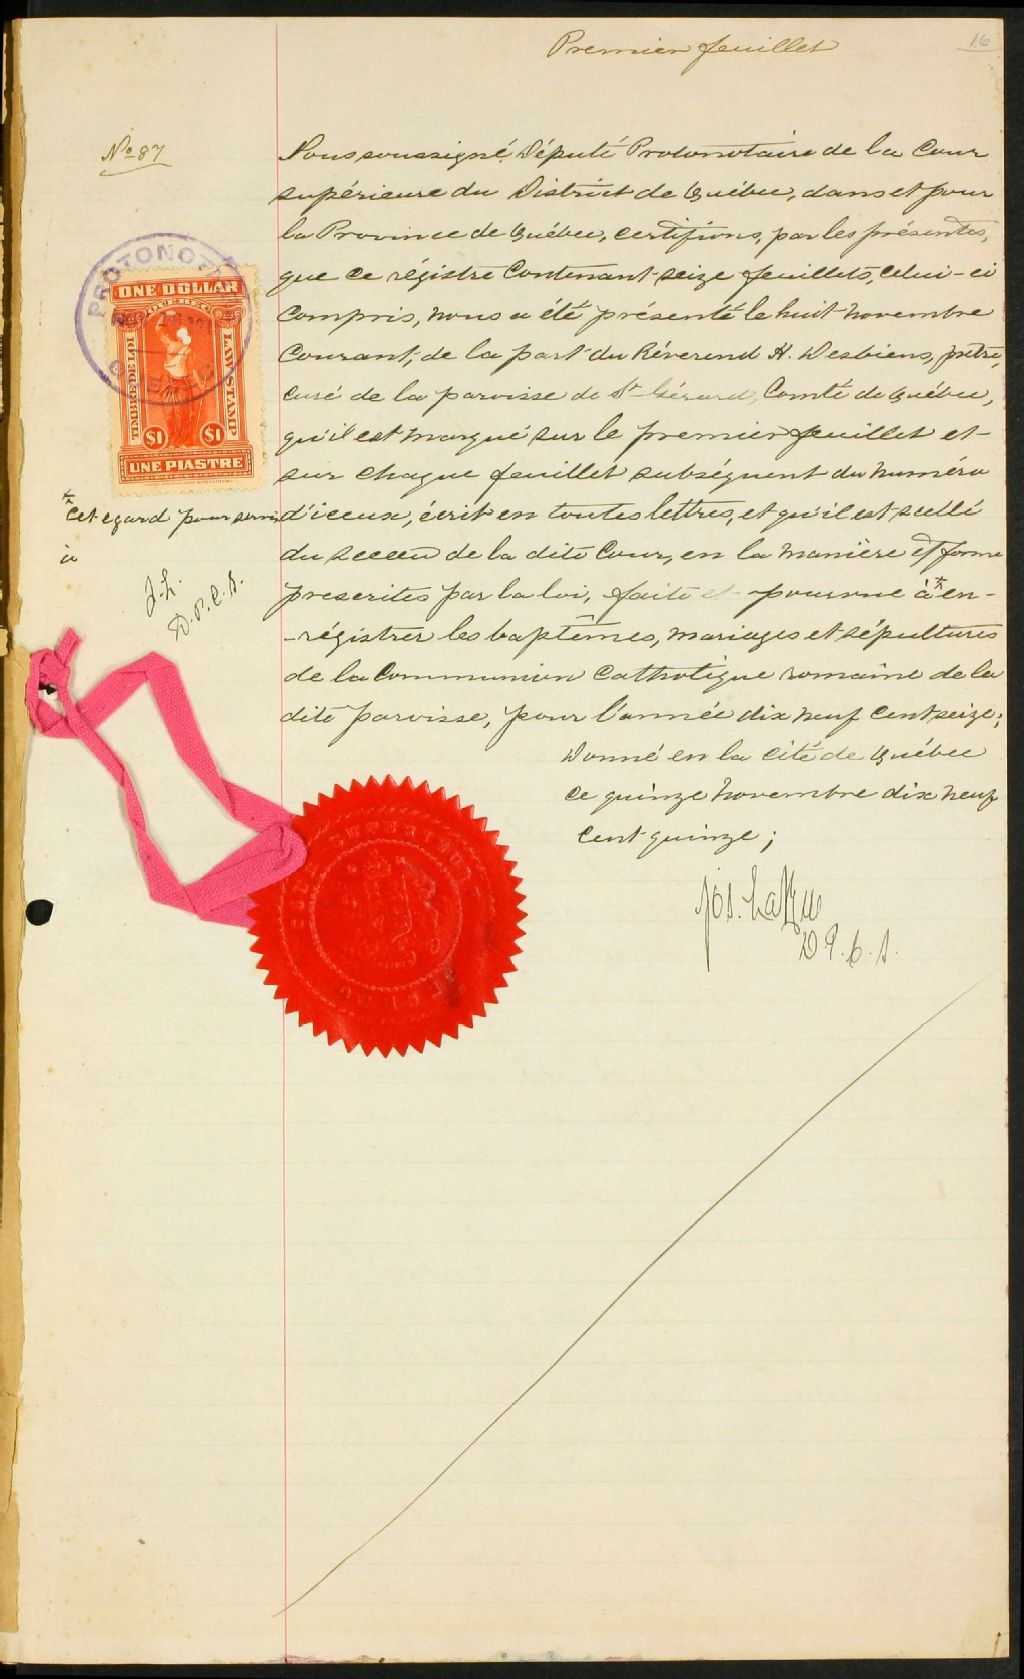 Premier feuillet
16
No 87
Nous soussigné, Député Protonotaire de la Cour
supérieure du District de Québec, dans et pour
la Province de Québec, certifions, par les présentes,
que ce régistre contenant seize feuillets, celui-ci
compris, nous a été présenté le huit novembre
courant, de la part du Révérend H. Desbiens, ptre,
curé de la paroisse de St Gérard, Comté de Québec,
qu'il est marqué sur le premier feuillet et
sur chaque feuillet subséquent du numéro
d'iceux, écrit en toutes lettres, et qu'il est scellé
du sceau de la dite Cour, en la manière et forme
prescrites par la loi, faite et pourvue à * en-
-régistrer les baptêmes, mariages et sépultures
de la Communion Catholique romaine de la
dite paroisse, pour l'année dix neuf cent seize;
Donné en la cité de Québec
ce quinze novembre dix neuf
cent quinze;
Jos.
D. P. C. S.
PROTONOT
NOV
ONE DOLLAR
QUEBEC
TIMBRE DE LOI
LAW STAMP
$1 $1
UNE PIASTRE
* cet egard pour servir
à
J. L.
D. P. C. S.